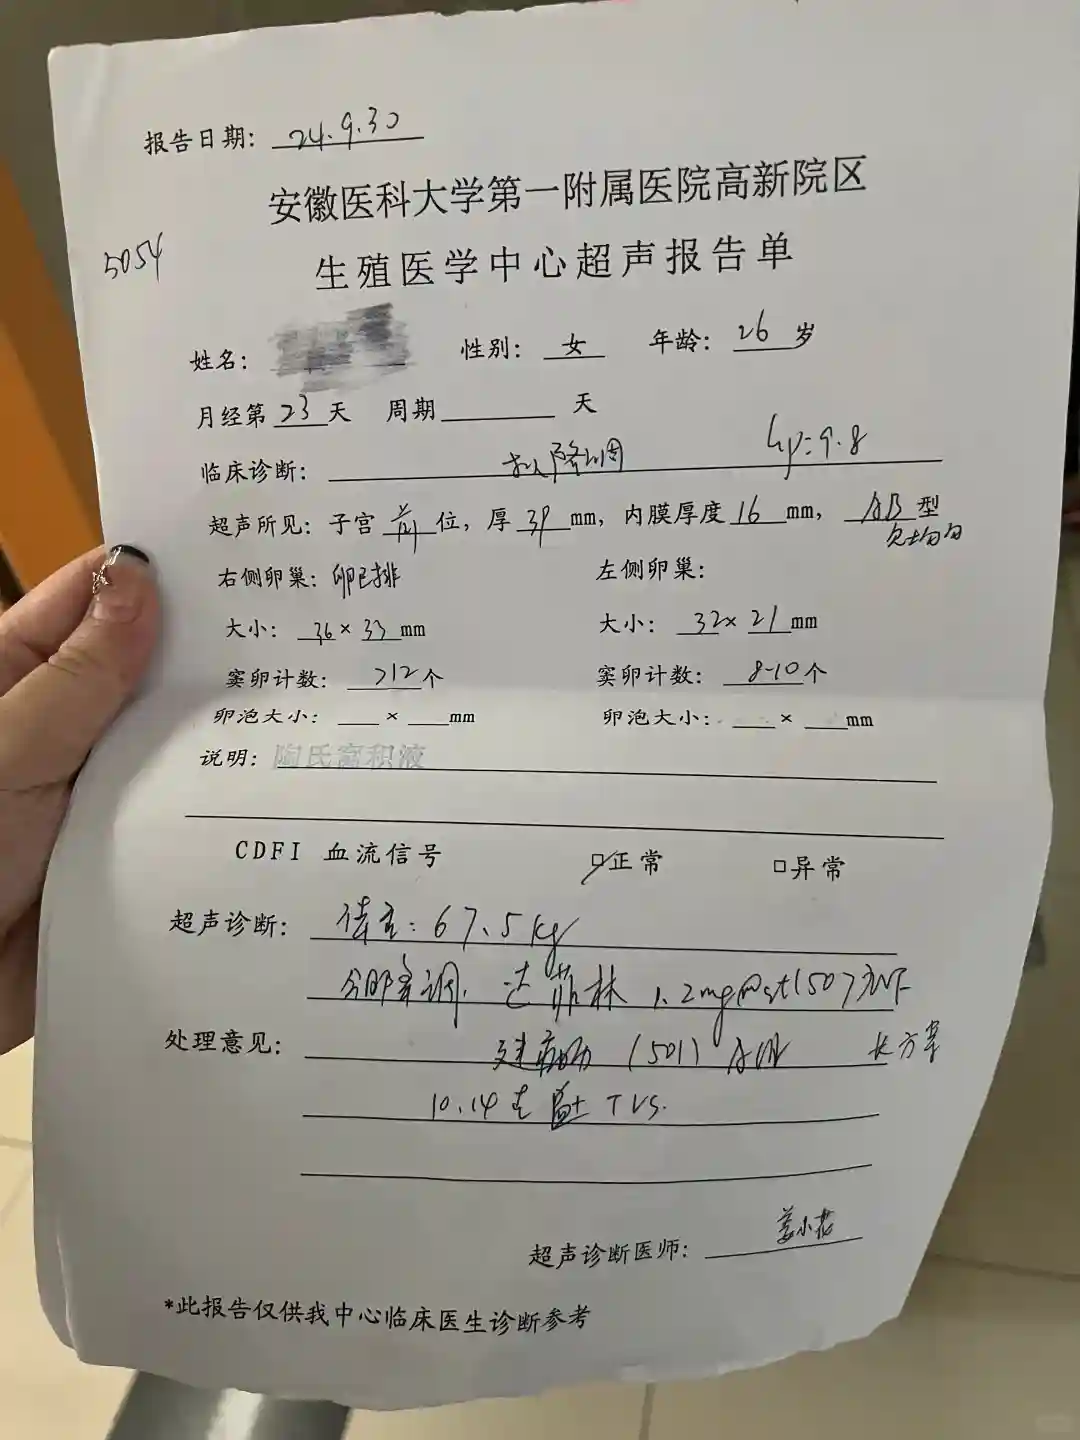 报告日期: 24.9.30
安徽医科大学第一附属医院高新院区
5054
生殖医学中心超声报告单
姓名: 性别: 女 年龄: 26 岁
月经第 23 天 周期 天
临床诊断: 拟降调 Lp:9.8
超声所见: 子宫 前 位, 厚 39 mm, 内膜厚度 16 mm, AB 型
欠均匀
右侧卵巢: 卵已排 左侧卵巢:
大小: 36 × 33 mm 大小: 32 × 21 mm
窦卵计数: >12 个 窦卵计数: 8-10 个
卵泡大小: × mm 卵泡大小: × mm
说明: 陶氏窝积液
CDFI 血流信号 正常 异常
超声诊断: 体重: 67.5kg
达菲林 1.2mg
处理意见: (501) 长方案
10.14 TVS.
超声诊断医师: 姜小花
*此报告仅供我中心临床医生诊断参考